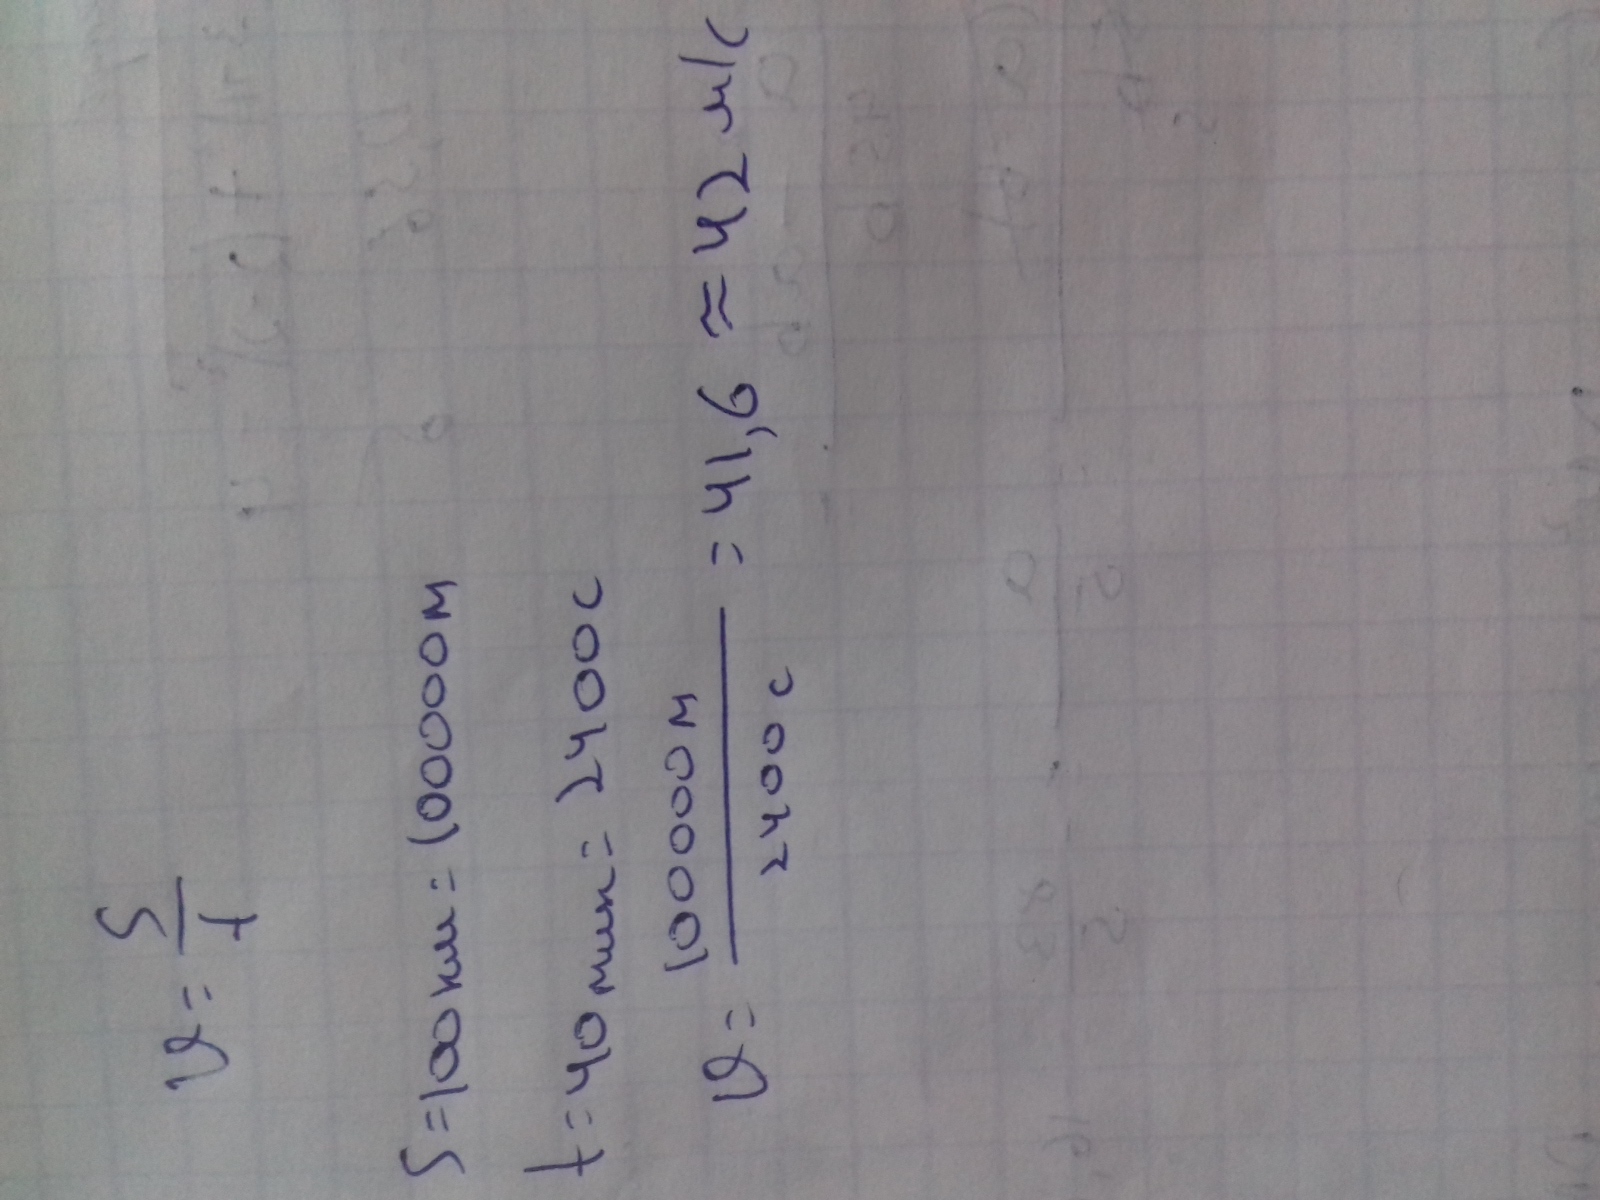 υ = S/t
S = 100 км = 100000 м
t = 40 мин = 2400 с
υ = 100000 м / 2400 с = 41,6 ≈ 42 м/с